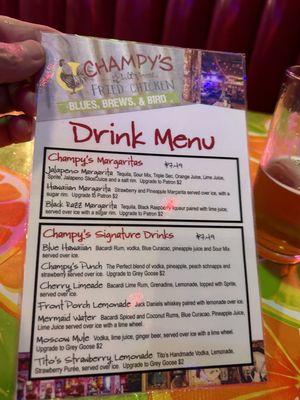 CHAMPY'S
FRIED CHICKEN
BLUES, BREWS, & BIRD
Drink Menu
Champy's Margaritas $7.49
Jalapeno Margarita Tequila, Sour Mix, Triple Sec, Orange Juice, Lime Juice,
Sprite, Jalapeno Slice/Juice and a salt rim. Upgrade to Patron $2
Hawaiian Margarita Strawberry and Pineapple Margarita served over ice, with a
sugar rim. Upgrade to Patron $2
Black Razz Margarita Tequila, Black Raspberry liqueur paired with lime juice,
served over ice with a sugar rim. Upgrade to Patron $2
Champy's Signature Drinks $7.49
Blue Hawaiian Bacardi Rum, vodka, Blue Curacao, pineapple juice and Sour Mix
served over ice.
Champy's Punch The Perfect blend of vodka, pineapple, peach schnapps and
strawberry served over ice. Upgrade to Grey Goose $2
Cherry Limeade Bacardi Lime Rum, Grenadine, Lemonade, topped with Sprite,
served over ice.
Front Porch Lemonade Jack Daniels whiskey paired with lemonade over ice.
Mermaid Water Bacardi Spiced and Coconut Rums, Blue Curacao, Pineapple,
Lime Juice served over ice with a lime wheel.
Moscow Mule Vodka, lime juice, ginger beer, served over ice with a lime wheel.
Upgrade to Grey Goose $2
Tito's Strawberry Lemonade Tito's Handmade Vodka, Lemonade,
Strawberry Purée, served over ice. Upgrade to Grey Goose $2